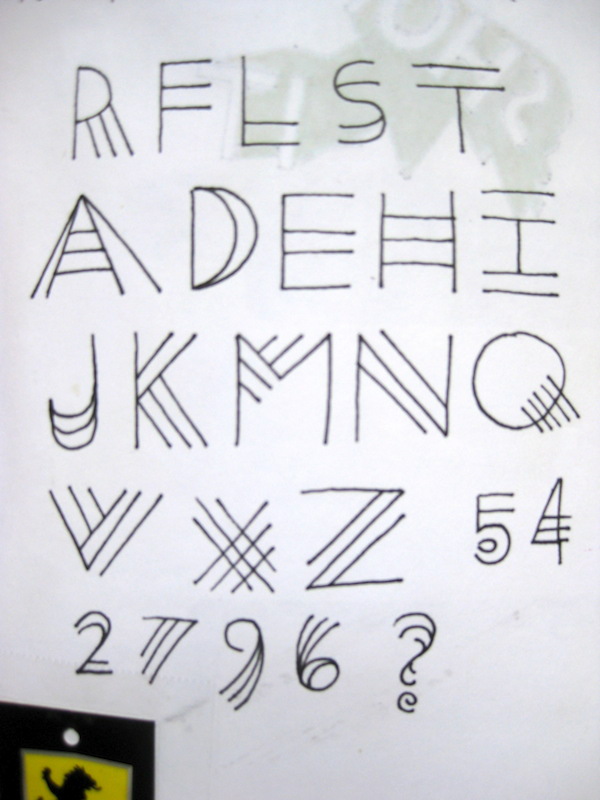 R F L S T
A D E H I
J K M N Q
V X Z 5 4
2 7 9 6 ?